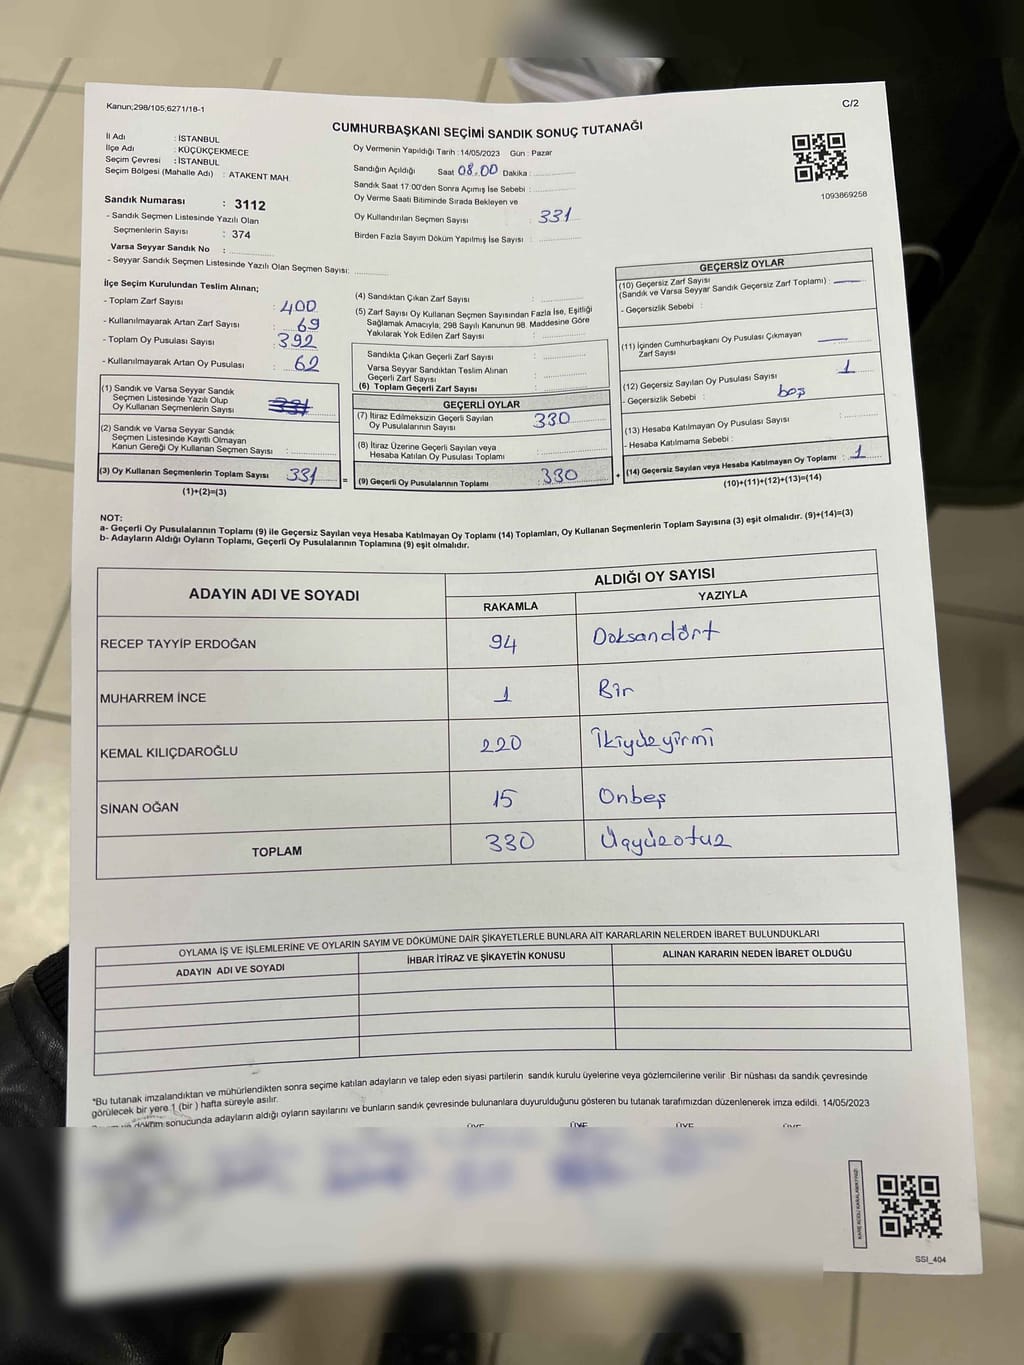 Kanun;298/105;6271/18-1
C/2
CUMHURBAŞKANI SEÇİMİ SANDIK SONUÇ TUTANAĞI
İl Adı : İSTANBUL
İlçe Adı : KÜÇÜKÇEKMECE
Seçim Çevresi : İSTANBUL
Seçim Bölgesi (Mahalle Adı) : ATAKENT MAH.
Sandık Numarası : 3112
- Sandık Seçmen Listesinde Yazılı Olan
Seçmenlerin Sayısı : 374
Varsa Seyyar Sandık No :
- Seyyar Sandık Seçmen Listesinde Yazılı Olan Seçmen Sayısı:
Oy Vermenin Yapıldığı Tarih : 14/05/2023 Gün : Pazar
Sandığın Açıldığı Saat 08.00 Dakika :
Sandık Saat 17:00'den Sonra Açımış İse Sebebi :
Oy Verme Saati Bitiminde Sırada Bekleyen ve
Oy Kullandırılan Seçmen Sayısı : 331
Birden Fazla Sayım Döküm Yapılmış İse Sayısı :
1093869258
İlçe Seçim Kurulundan Teslim Alınan;
- Toplam Zarf Sayısı : 400
- Kullanılmayarak Artan Zarf Sayısı : 69
- Toplam Oy Pusulası Sayısı : 392
- Kullanılmayarak Artan Oy Pusulası : 62
(1) Sandık ve Varsa Seyyar Sandık
Seçmen Listesinde Yazılı Olup
Oy Kullanan Seçmenlerin Sayısı 331
(2) Sandık ve Varsa Seyyar Sandık
Seçmen Listesinde Kayıtlı Olmayan
Kanun Gereği Oy Kullanan Seçmen Sayısı :
(3) Oy Kullanan Seçmenlerin Toplam Sayısı 331 =
(1)+(2)=(3)
(4) Sandıktan Çıkan Zarf Sayısı :
(5) Zarf Sayısı Oy Kullanan Seçmen Sayısından Fazla İse, Eşitliği
Sağlamak Amacıyla, 298 Sayılı Kanunun 98. Maddesine Göre
Yakılarak Yok Edilen Zarf Sayısı :
Sandıkta Çıkan Geçerli Zarf Sayısı :
Varsa Seyyar Sandıktan Teslim Alınan
Geçerli Zarf Sayısı :
(6) Toplam Geçerli Zarf Sayısı :
GEÇERLİ OYLAR
(7) İtiraz Edilmeksizin Geçerli Sayılan
Oy Pusulalarının Sayısı : 330
(8) İtiraz Üzerine Geçerli Sayılan veya
Hesaba Katılan Oy Pusulası Toplamı :
(9) Geçerli Oy Pusulalarının Toplamı : 330 +
GEÇERSİZ OYLAR
(10) Geçersiz Zarf Sayısı
(Sandık ve Varsa Seyyar Sandık Geçersiz Zarf Toplamı) : —
- Geçersizlik Sebebi :
(11) İçinden Cumhurbaşkanı Oy Pusulası Çıkmayan
Zarf Sayısı —
(12) Geçersiz Sayılan Oy Pusulası Sayısı : 1
- Geçersizlik Sebebi : boş
(13) Hesaba Katılmayan Oy Pusulası Sayısı :
- Hesaba Katılmama Sebebi :
(14) Geçersiz Sayılan veya Hesaba Katılmayan Oy Toplamı : 1
(10)+(11)+(12)+(13)=(14)
NOT:
a- Geçerli Oy Pusulalarının Toplamı (9) ile Geçersiz Sayılan veya Hesaba Katılmayan Oy Toplamı (14) Toplamları, Oy Kullanan Seçmenlerin Toplam Sayısına (3) eşit olmalıdır. (9)+(14)=(3)
b- Adayların Aldığı Oyların Toplamı, Geçerli Oy Pusulalarının Toplamına (9) eşit olmalıdır.
ADAYIN ADI VE SOYADI
ALDIĞI OY SAYISI
RAKAMLA YAZIYLA
RECEP TAYYİP ERDOĞAN 94 Doksandört
MUHARREM İNCE 1 Bir
KEMAL KILIÇDAROĞLU 220 İkiyüzyirmi
SİNAN OĞAN 15 Onbeş
TOPLAM 330 Üçyüzotuz
OYLAMA İŞ VE İŞLEMLERİNE VE OYLARIN SAYIM VE DÖKÜMÜNE DAİR ŞİKAYETLERLE BUNLARA AİT KARARLARIN NELERDEN İBARET BULUNDUKLARI
ADAYIN ADI VE SOYADI İHBAR İTİRAZ VE ŞİKAYETİN KONUSU ALINAN KARARIN NEDEN İBARET OLDUĞU
*Bu tutanak imzalandıktan ve mühürlendikten sonra seçime katılan adayların ve talep eden siyasi partilerin sandık kurulu üyelerine veya gözlemcilerine verilir. Bir nüshası da sandık çevresinde
görülecek bir yere 1 (bir ) hafta süreyle asılır.
ve döküm sonucunda adayların aldığı oyların sayılarını ve bunların sandık çevresinde bulunanlara duyurulduğunu gösteren bu tutanak tarafımızdan düzenlenerek imza edildi. 14/05/2023
ÜYE ÜYE ÜYE ÜYE
SSI_404